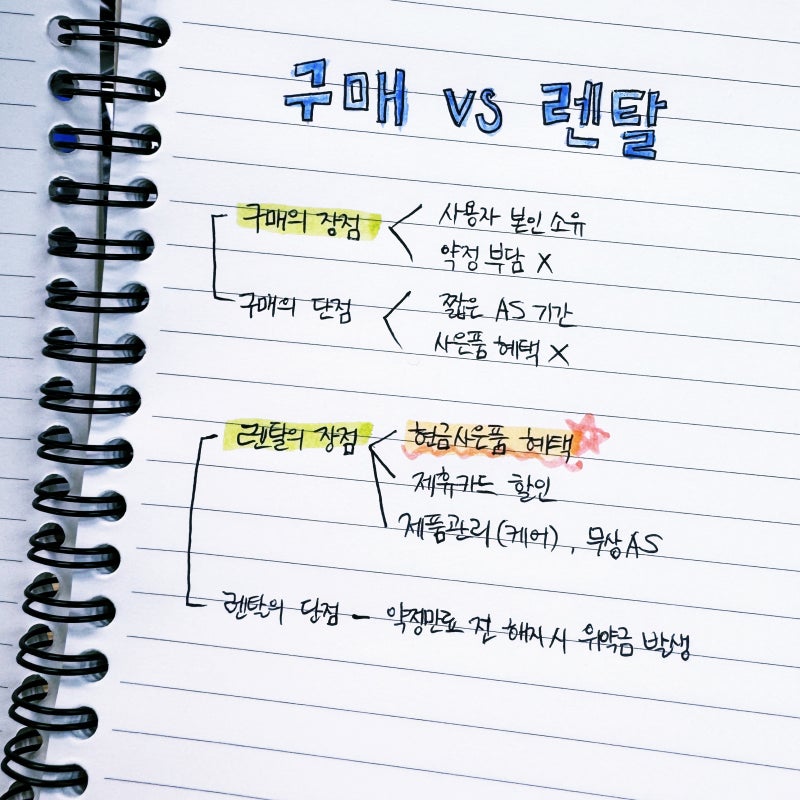 구매 vs 렌탈
구매의 장점 < 사용자 본인 소유
약정 부담 X
구매의 단점 < 짧은 AS 기간
사은품 혜택 X
렌탈의 장점 < 현금사은품 혜택
제휴카드 할인
제품관리(케어), 무상AS
렌탈의 단점 - 약정만료 전 해지시 위약금 발생